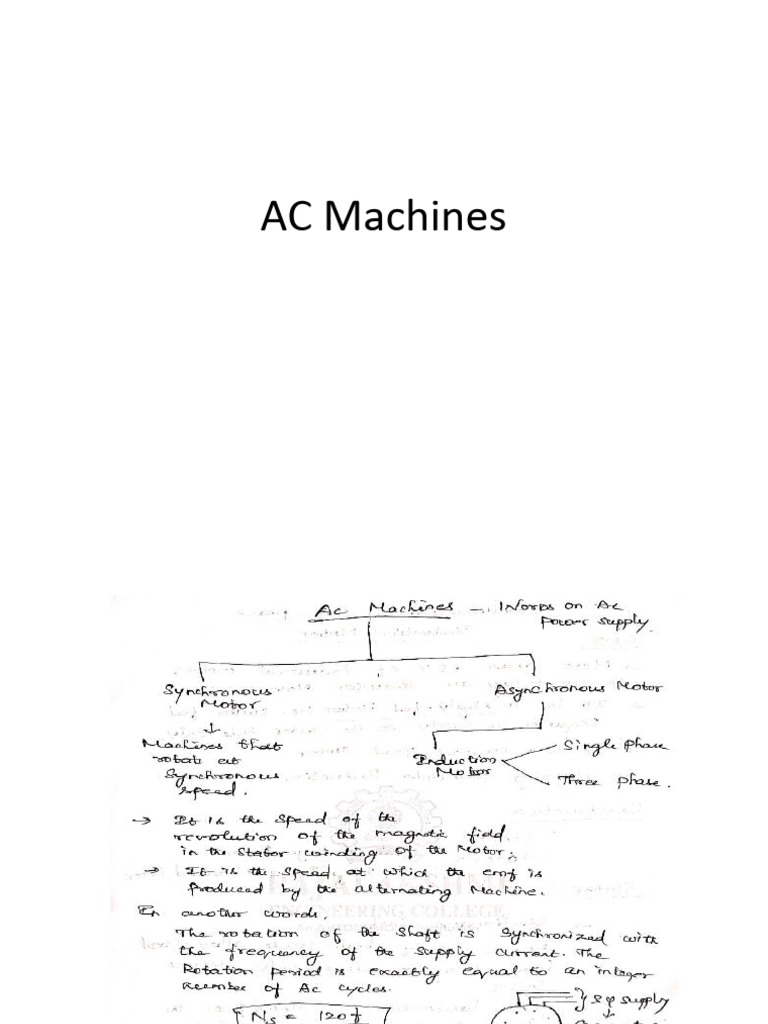 AC Machines
Ac Machines - Works on Ac
Power Supply.
Synchronous
Motor
Asynchronous Motor
Machines that
rotate at
Synchronous
Speed.
Induction
Motor
Single phase
Three phase.
→ It is the speed of the
revolution of the magnetic field
in the Stator winding of the Motor.
→ It is the speed at which the emf is
Produced by the alternating Machine.
In another words,
The rotation of the shaft is synchronized with
the frequency of the supply current. The
Rotation period is exactly equal to an integer
Number of Ac cycles.
Ns = 120f
3φ supply
ENGINEERING COLLEGE